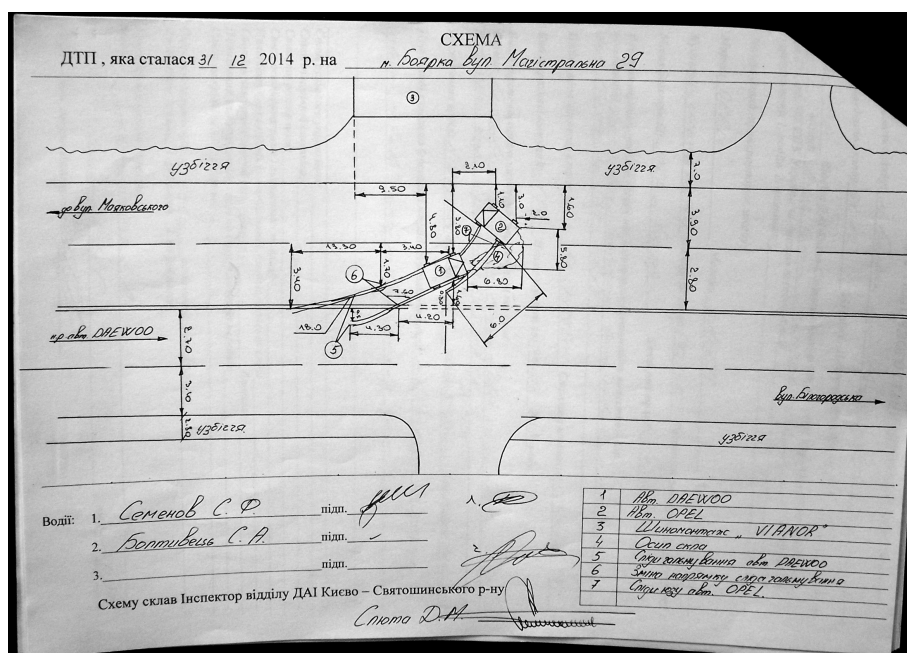 СХЕМА
ДТП , яка сталася 31 12 2014 р. на м. Боярка вул. Магістральна 29
3
узбіччя
2.10
узбіччя
2.0
9.50
до вул. Маяковського
4.80
1.50
3.90
2
7
13.30
3.40
4
5.80
3.40
6
1.20
1
7.40
6.80
2.80
18.0
4.20
4.30
6.0
5
пр. авт. DAEWOO
2.70
вул. Білогородська
узбіччя
узбіччя
Водії: 1. Семенов С. Ф. підп. 1.
2. Болтивець С. А. підп. 2.
3. підп.
Схему склав Інспектор відділу ДАІ Києво – Святошинського р-ну
Слюта Д.М.
1 Авт. DAEWOO
2 Авт. OPEL
3 Шиномонтаж „ VIANOR"
4 Осип скла
5 Сліди гальмування авт DAEWOO
6 Зміна напрямку сліда гальмування
7 Сліди юзу авт. OPEL.